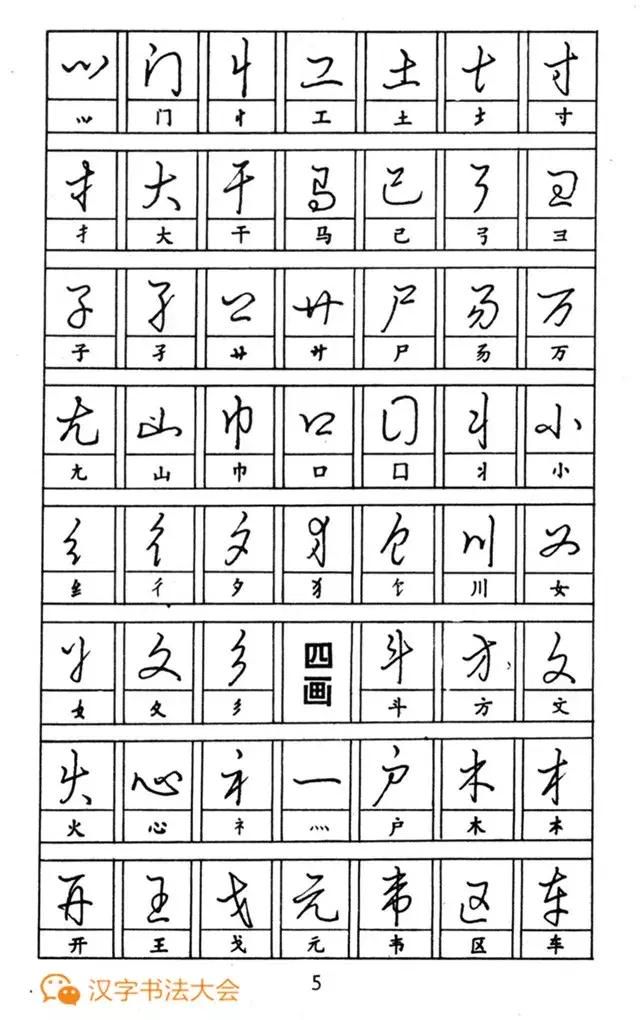 ⺌ 门 丬 工 土 土 寸
⺌ 门 丬 工 土 土 寸
扌 大 干 马 己 弓 彐
扌 大 干 马 己 弓 彐
子 孑 廾 廾 尸 万
子 孑 廾 廾 尸 万
尢 山 巾 口 囗 丬 小
尢 山 巾 口 囗 丬 小
纟 彳 夕 犭 饣 川 女
纟 彳 夕 犭 饣 川 女
女 夂 彡 四画 斗 方 文
女 夂 彡 斗 方 文
火 心 礻 灬 户 木 木
火 心 礻 灬 户 木 木
开 王 戈 元 韦 区 车
开 王 戈 元 韦 区 车
汉字书法大会
5